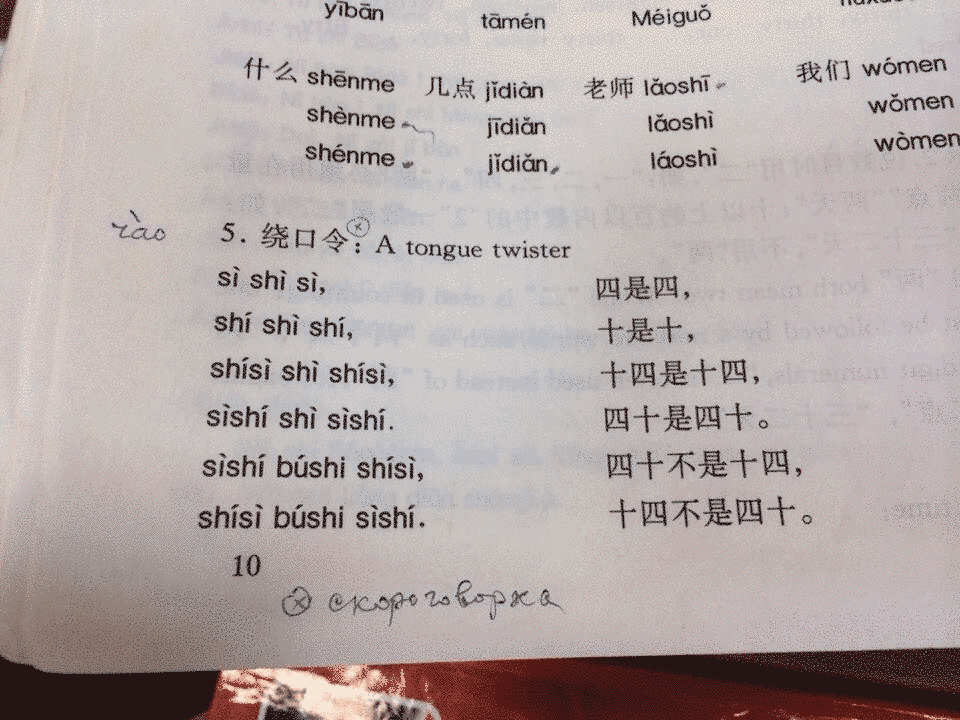 yībān tāmén Méiguǒ
什么 shēnme 几点 jídiàn 老师 lǎoshī 我们 wómen
shènme jīdiǎn lǎoshì wǒmen
shénme jǐdiǎn láoshì wòmen
rào 5. 绕口令: A tongue twister
sì shì sì, 四是四,
shí shì shí, 十是十,
shísì shì shísì, 十四是十四,
sìshí shì sìshí. 四十是四十。
sìshí búshi shísì, 四十不是十四,
shísì búshi sìshí. 十四不是四十。
10
скороговорка